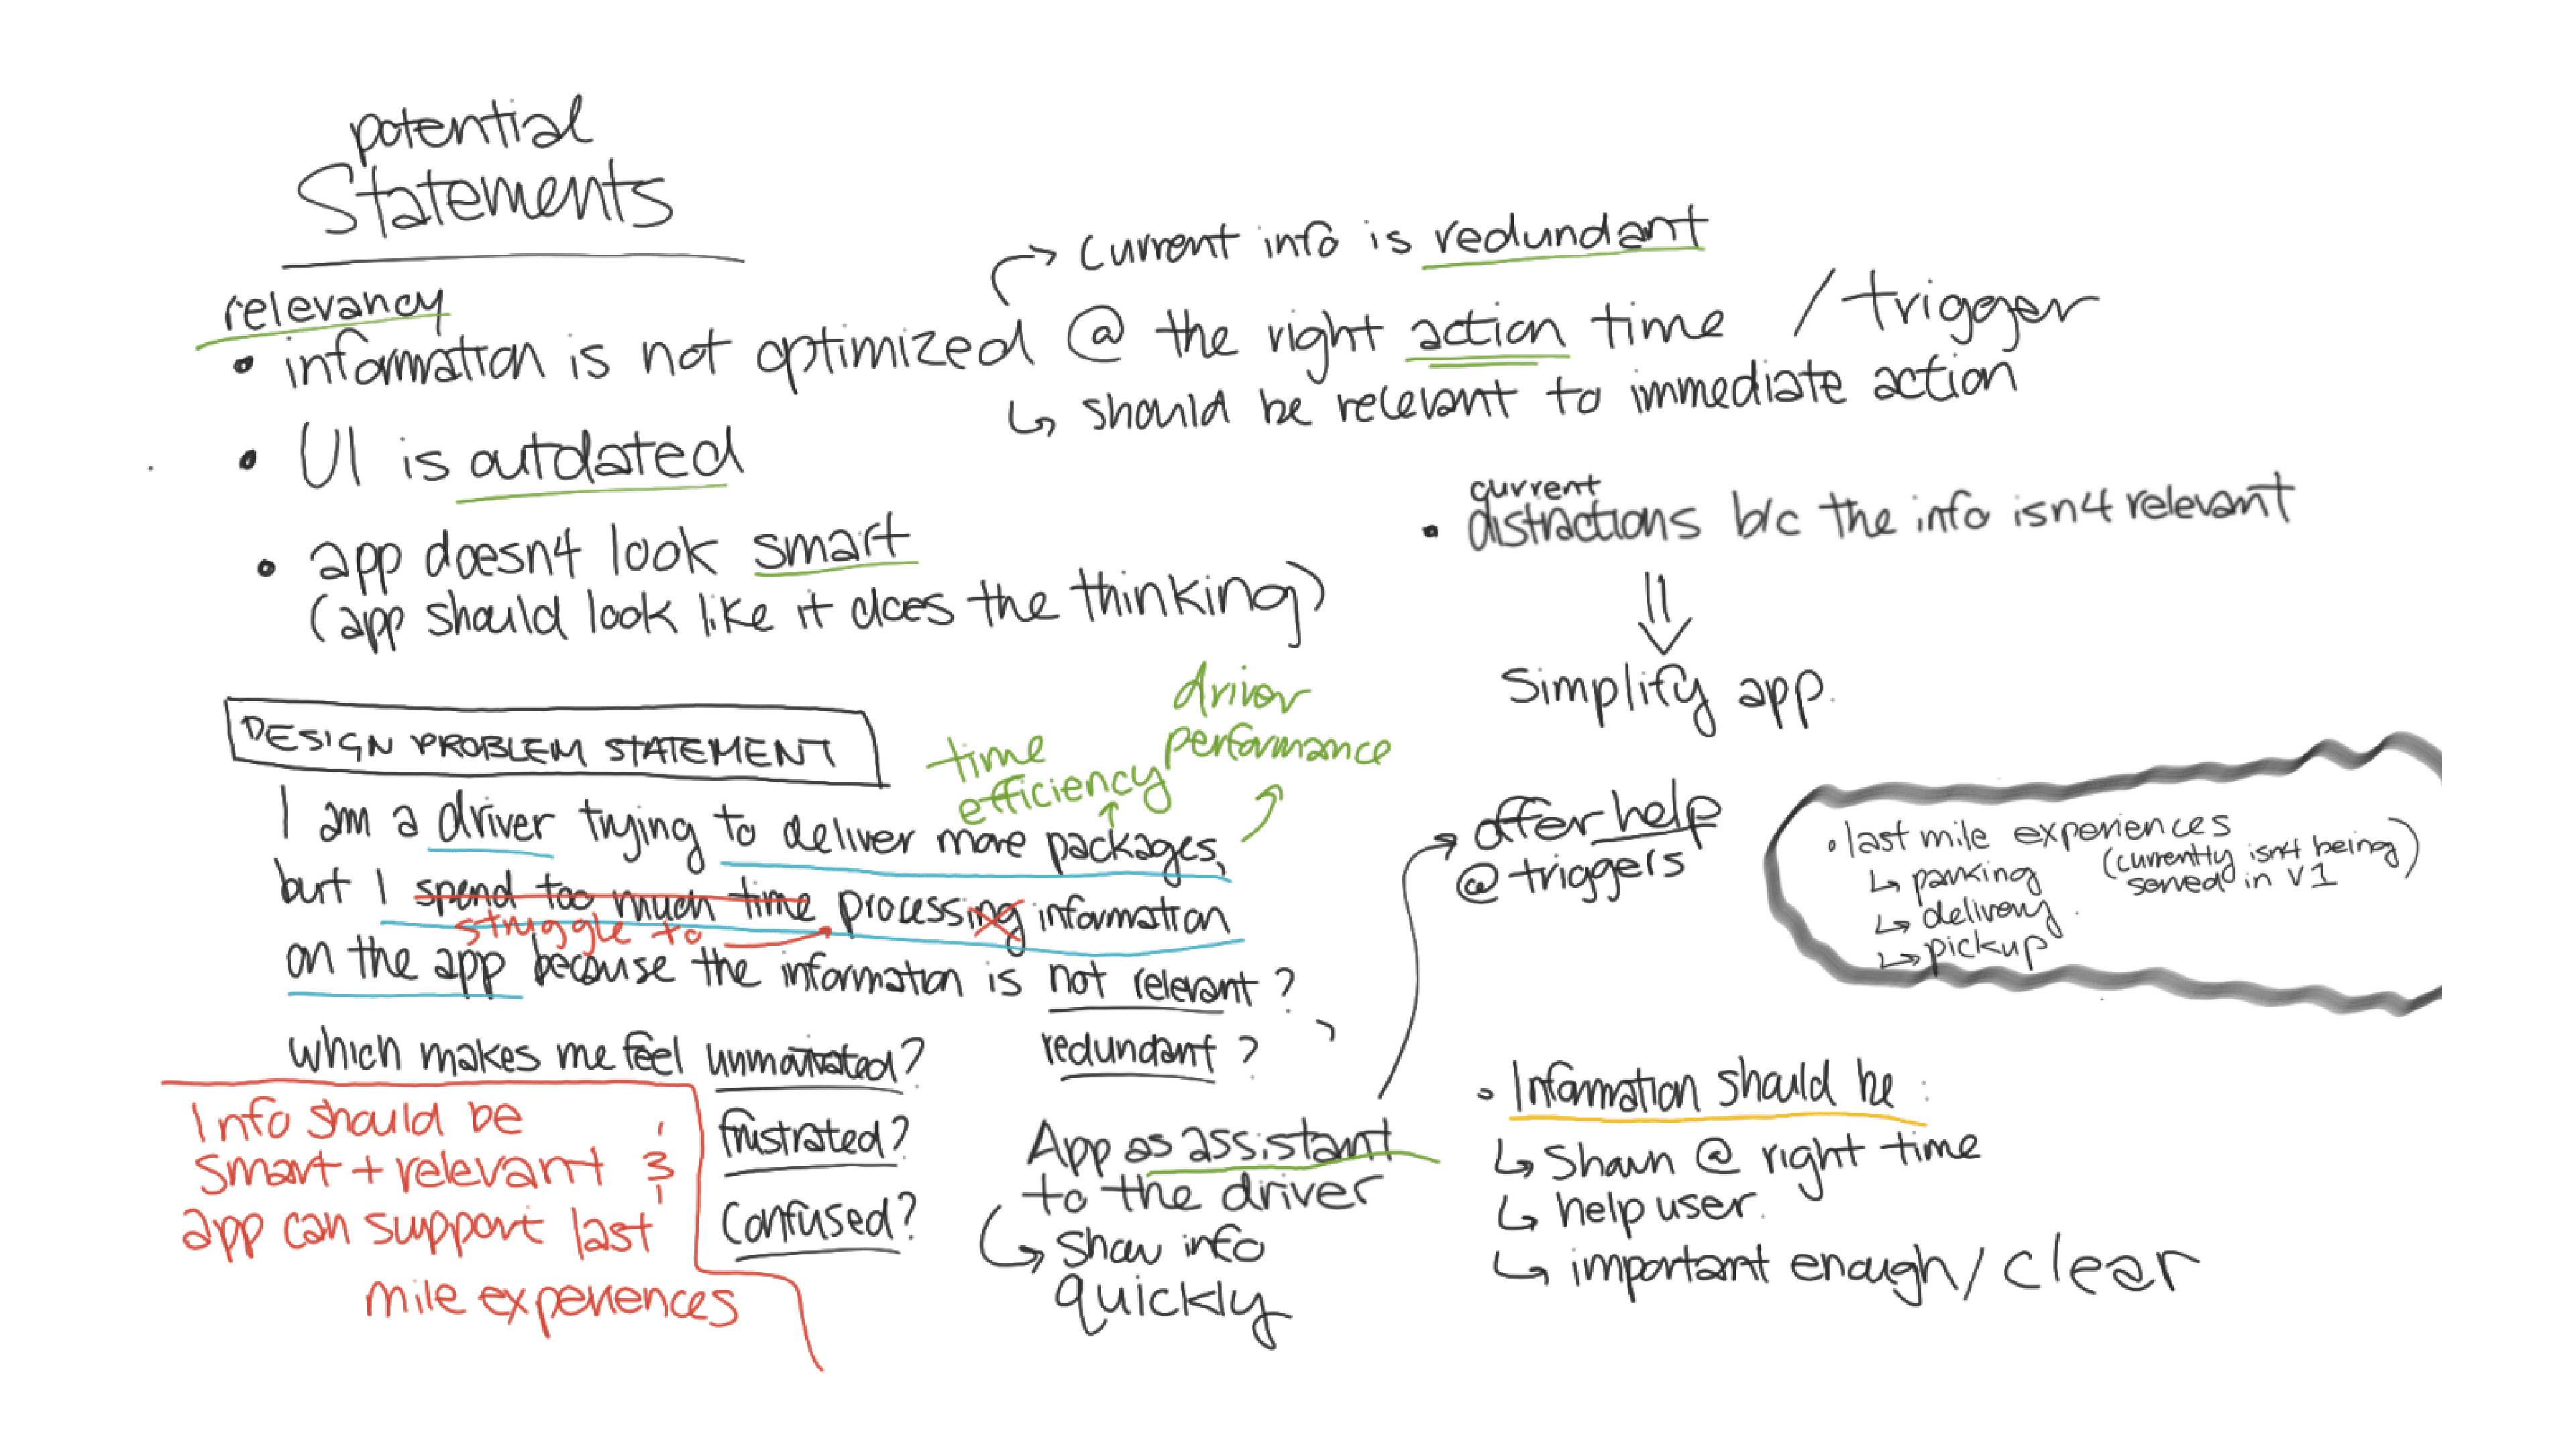 potential
Statements
relevancy
→ current info is redundant
• information is not optimized @ the right action time / trigger
↳ should be relevant to immediate action
• UI is outdated
• app doesn't look smart
(app should look like it does the thinking)
current
• distractions b/c the info isn't relevant
⇓
Simplify app.
DESIGN PROBLEM STATEMENT
time
efficiency
driver
performance
I am a driver trying to deliver more packages,
but I spend too much time processing information
struggle to
on the app because the information is not relevant?
redundant?
which makes me feel unmotivated?
frustrated?
confused?
Info should be
smart + relevant &
app can support last
mile experiences
App as assistant
to the driver
↳ show info
quickly
offer help
@ triggers
• last mile experiences
(currently isn't being
served in V1)
↳ parking
↳ delivery
↳ pickup
• Information should be:
↳ shown @ right time
↳ help user.
↳ important enough / clear